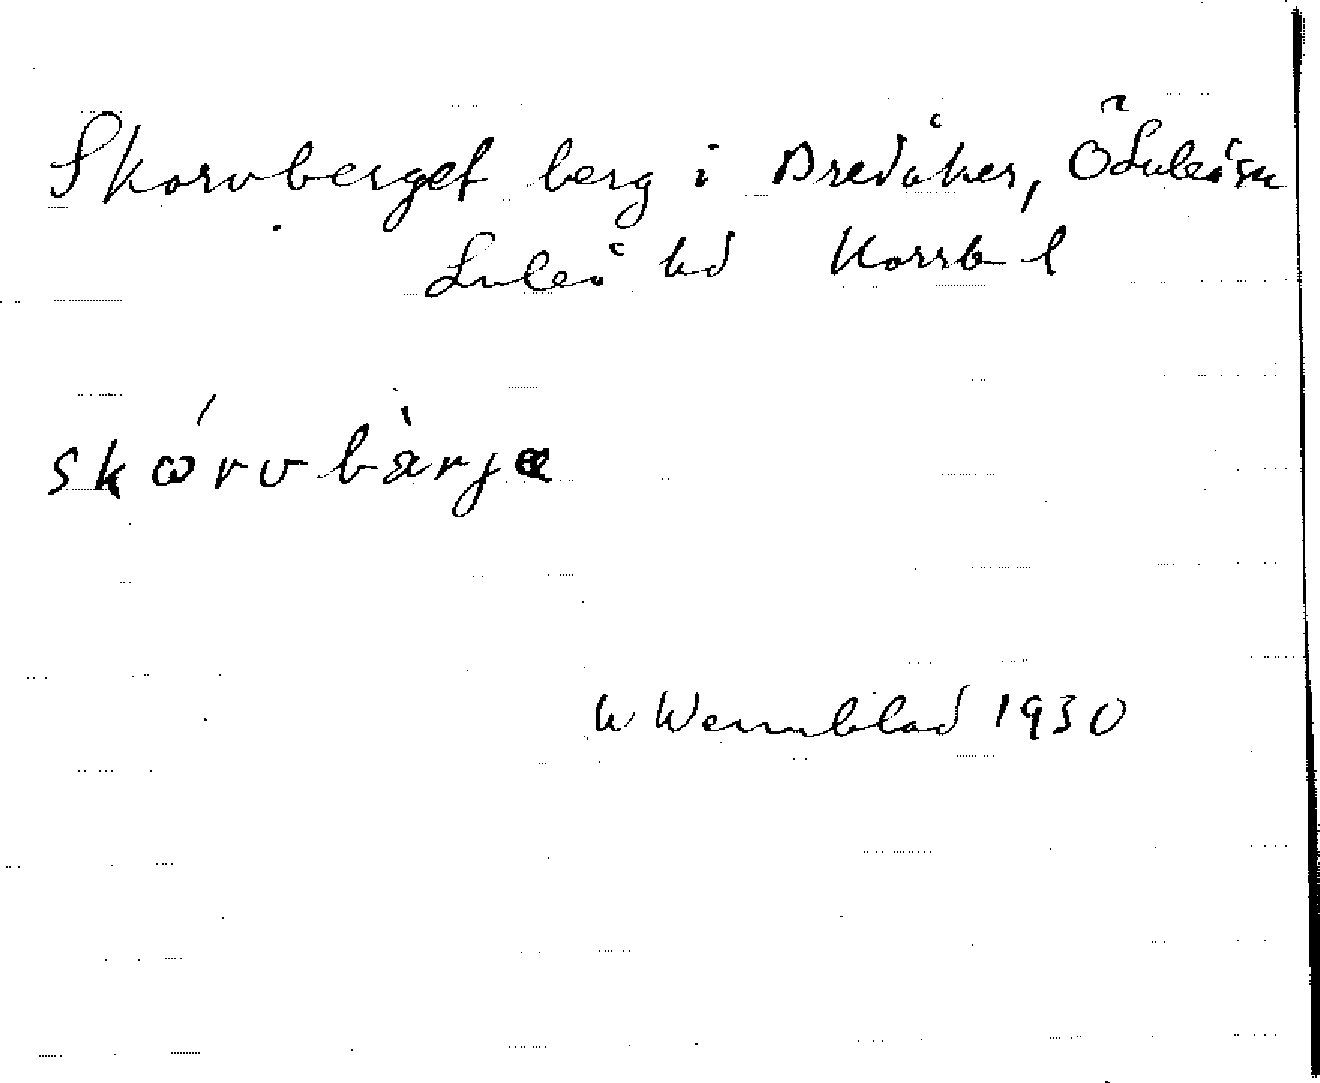 Skorvberget berg i Bredåker, ÖLuleå sn
Luleå hd Norrb l
skórvbàrjæ
W Wennblad 1930